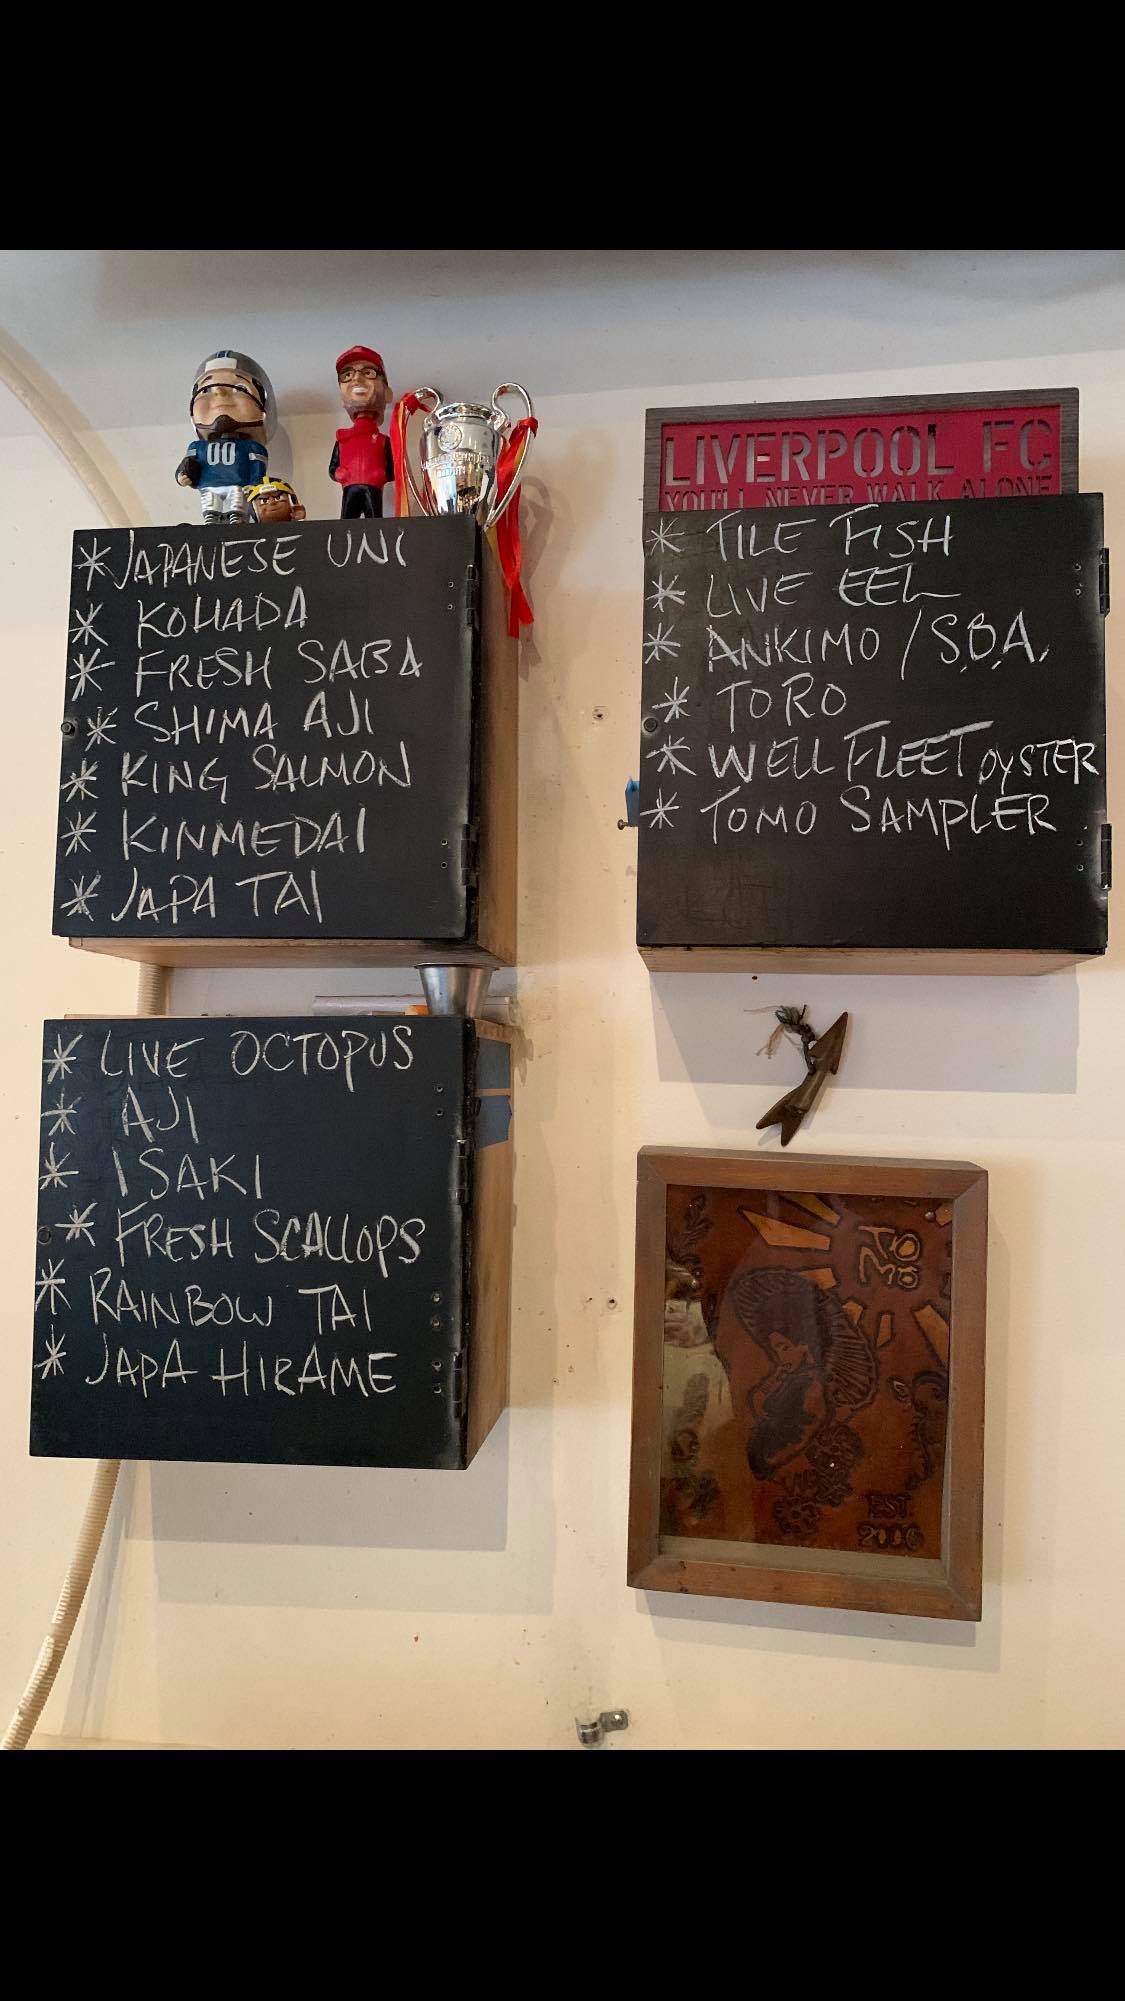 00
* JAPANESE UNI
* KOHADA
* FRESH SABA
* SHIMA AJI
* KING SALMON
* KINMEDAI
* JAPA TAI
LIVERPOOL FC
YOU'LL NEVER WALK ALONE
* TILE FISH
* LIVE EEL
* ANKIMO / S.B.A.
* TORO
* WELLFLEET OYSTER
* TOMO SAMPLER
* LIVE OCTOPUS
* AJI
* ISAKI
* FRESH SCALLOPS
* RAINBOW TAI
* JAPA HIRAME
EST.
2006